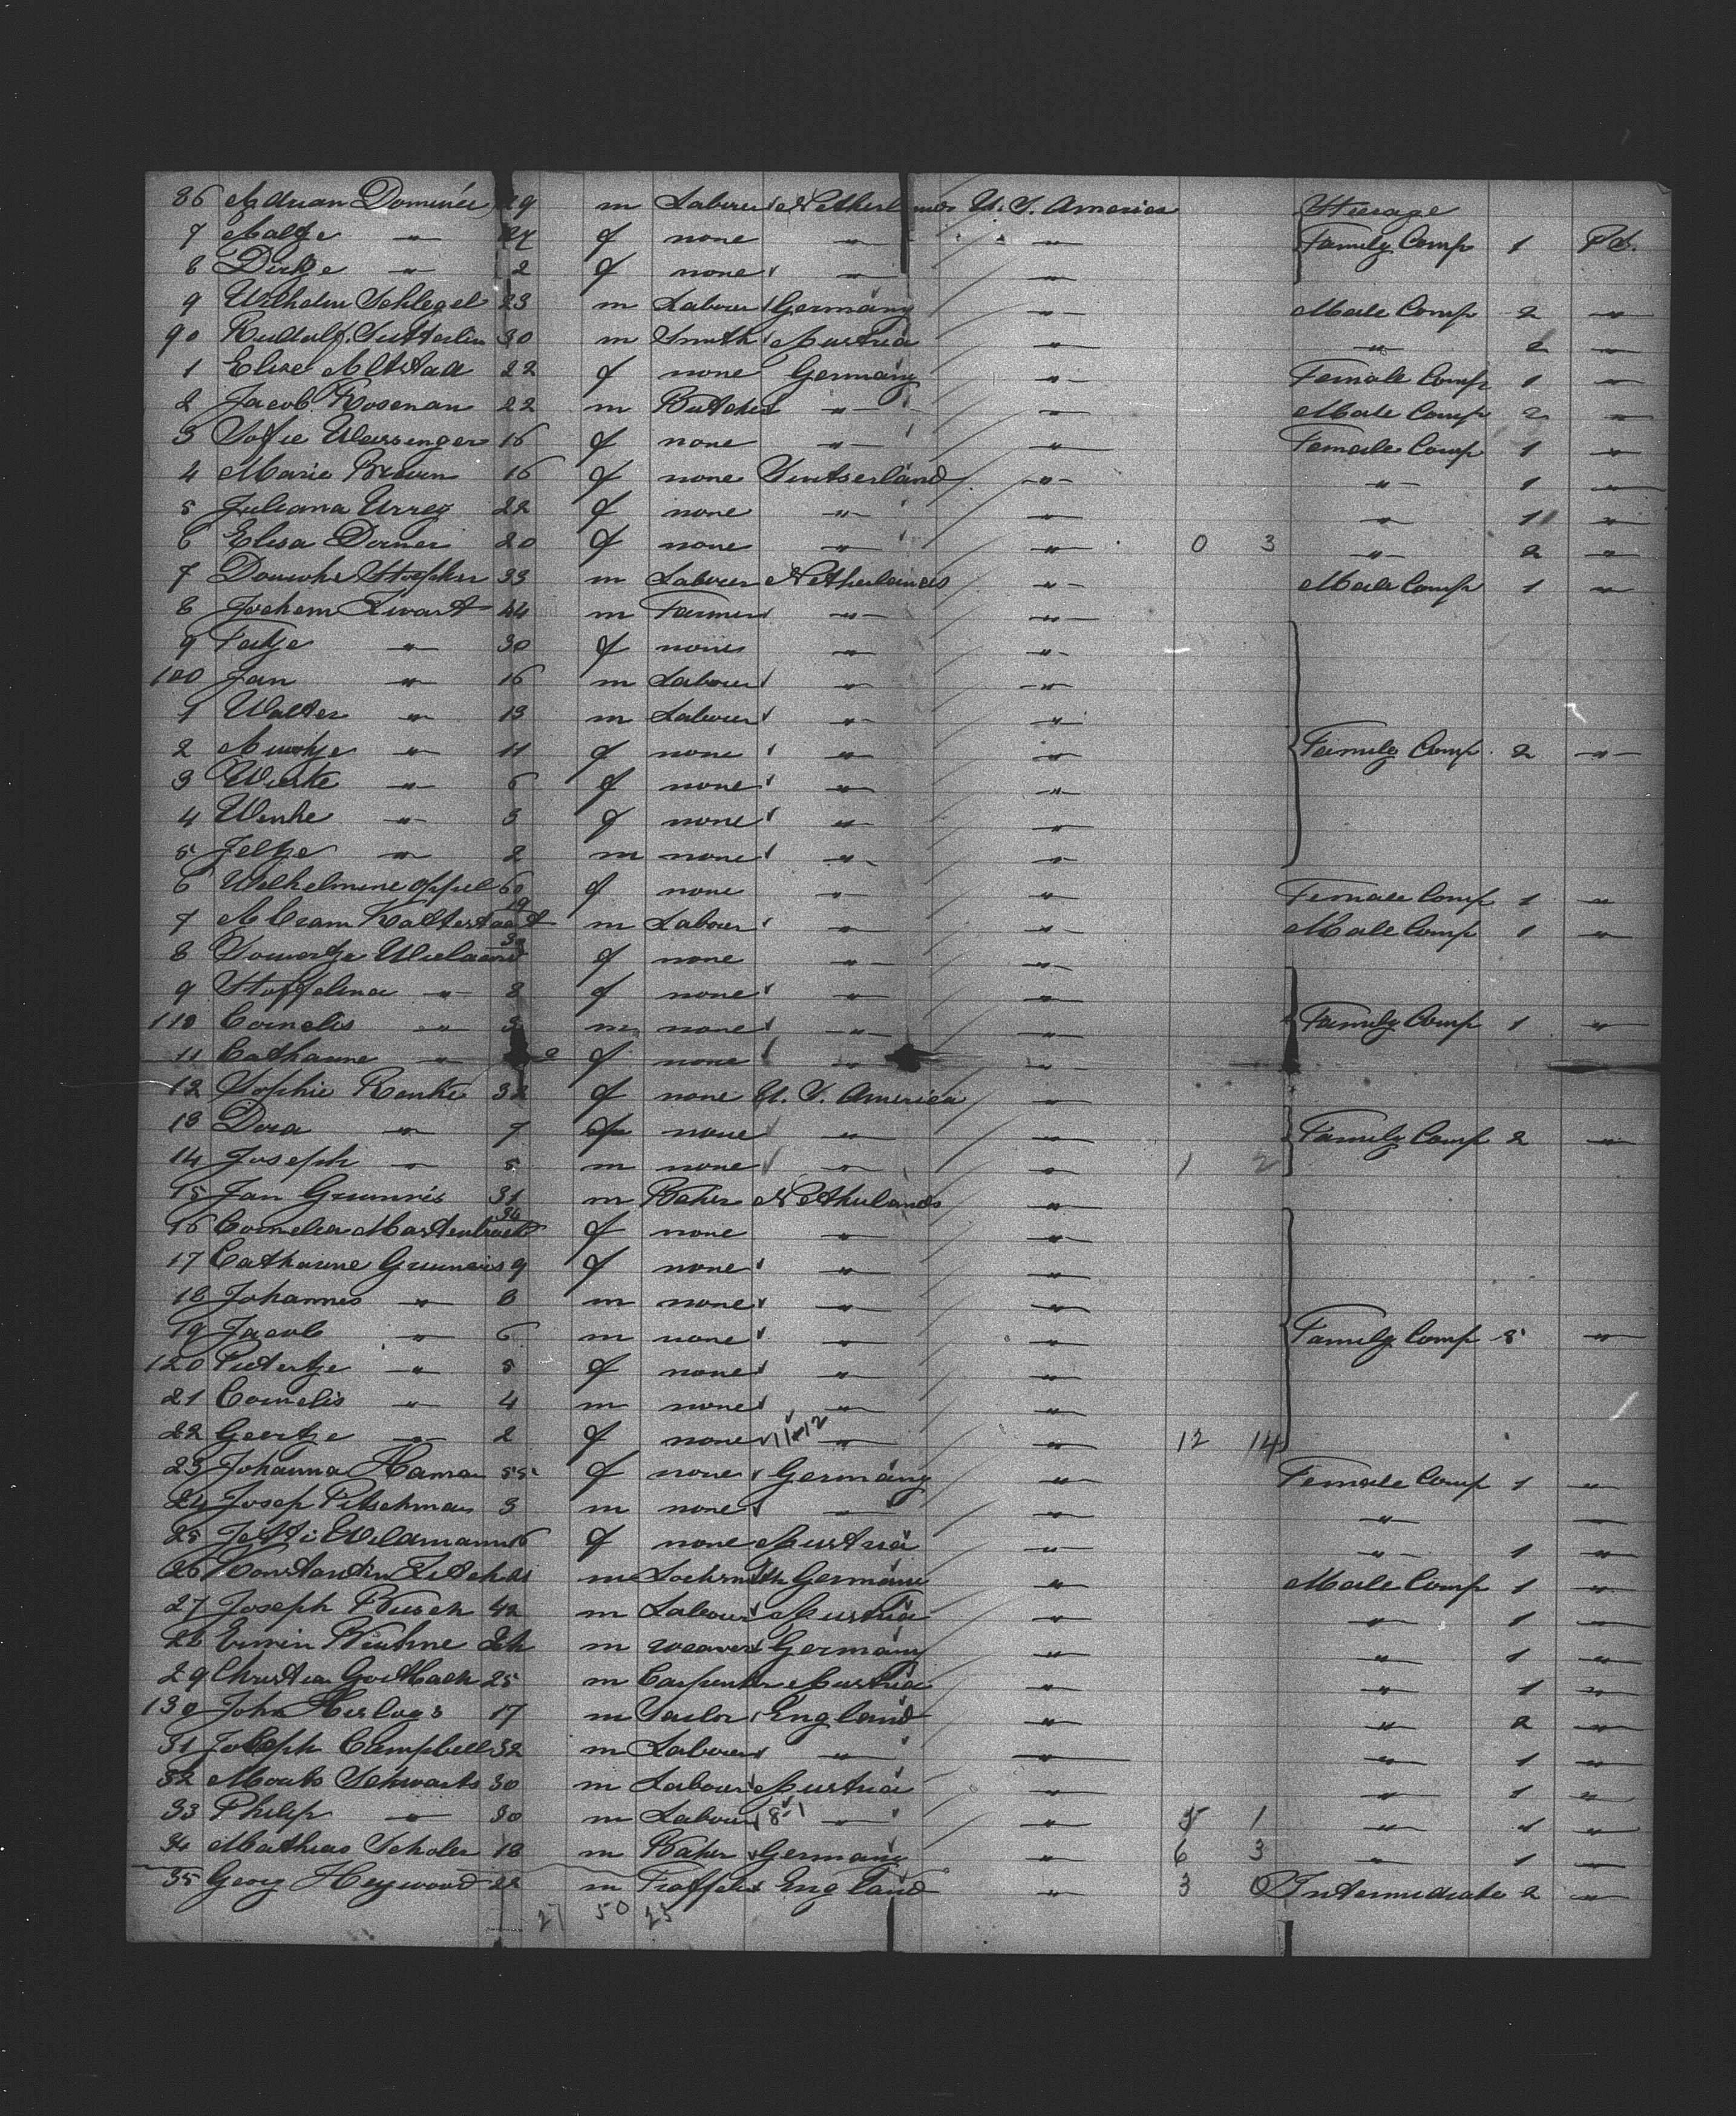 86 Adrian Dominée 29 m Labourer Netherlands U. S. America Steerage
7 Maltje " 27 f none " " Family Comp 1 Pd.
8 Dirkje " 2 f none " "
9 Wilhelm Schlegel 23 m Labourer Germany " Male Comp 2 "
90 Rudolf Sutterlin 30 m Smith Austria " " 2 "
1 Elise Altstad 22 f none Germany " Female Comp 1 "
2 Jacob Rosenan 22 m Butcher " " Male Comp 2 "
3 Sofie Weissenger 16 f none " " Female Comp 1 "
4 Marie Braun 16 f none Switserland " " 1 "
5 Juliana Urreg 22 f none " " " 1 "
6 Elisa Dorner 20 f none " " 0 3 " 2 "
7 Douwke 33 m Labourer Netherlands " Male Comp 1 "
8 Jochem Zwart 44 m Farmer " "
9 Fetje " 30 f none " "
100 Jan " 16 m Labourer " "
1 Walter " 13 m Labourer " "
2 " 11 f none " " Family Comp 2 "
3 " 6 f none " "
4 Wenke " 3 f none " "
5 Jeltje " 2 m none " "
6 Wilhelmine Oppel 60 f none " " Female Comp 1 "
7 Abram 19 m Labourer " " Male Comp 1 "
8 30 f none " "
9 Stoffelina " 8 f none " "
110 Cornelis " 3 m none " " Family Comp 1 "
11 Catharine " 2 f none " "
12 Sophie Renke 32 f none U. S. America "
13 Dora " 7 f none " " Family Comp 2 "
14 Joseph " 5 m none " " 1 2
15 Jan Grumris 31 m Baker Netherlands "
16 Cornelia Mastenbroek 34 f none " "
17 Catharine 9 f none " "
18 Johannes " 8 m none " "
19 Jacob " 6 m none " " Family Comp 5 "
120 Pietertje " 5 f none " "
21 Cornelis " 4 m none " "
22 Geertje " 2 f none 11+12 " " 12 14
23 Johanna Hama 55 f none Germany " Female Comp 1 "
24 Josep Pitschman 3 m none " " " "
25 Jetti Weldmann 16 f none Austria " " 1 "
26 Constantin m Locksmith Germany " Male Comp 1 "
27 Joseph Busch 42 m Labour Austria " " 1 "
28 Erwin Kuhne m weaver Germany " " 1 "
29 Christian 25 m Carpenter Austria " " 1 "
130 John 17 m Tailor England " " 2 "
31 Joseph Campbell 32 m Labourer " " " 1 "
32 Schwarts 30 m Labour Austria " " 1 "
33 Philip " 30 m Labour 8-1 " " 5 1 " 1 "
34 Mathias Scholer 18 m Baker Germany " 6 3 " 1 "
35 Georg Heywood 22 m England " 3 0 Intermediate 2 "
27 50 25